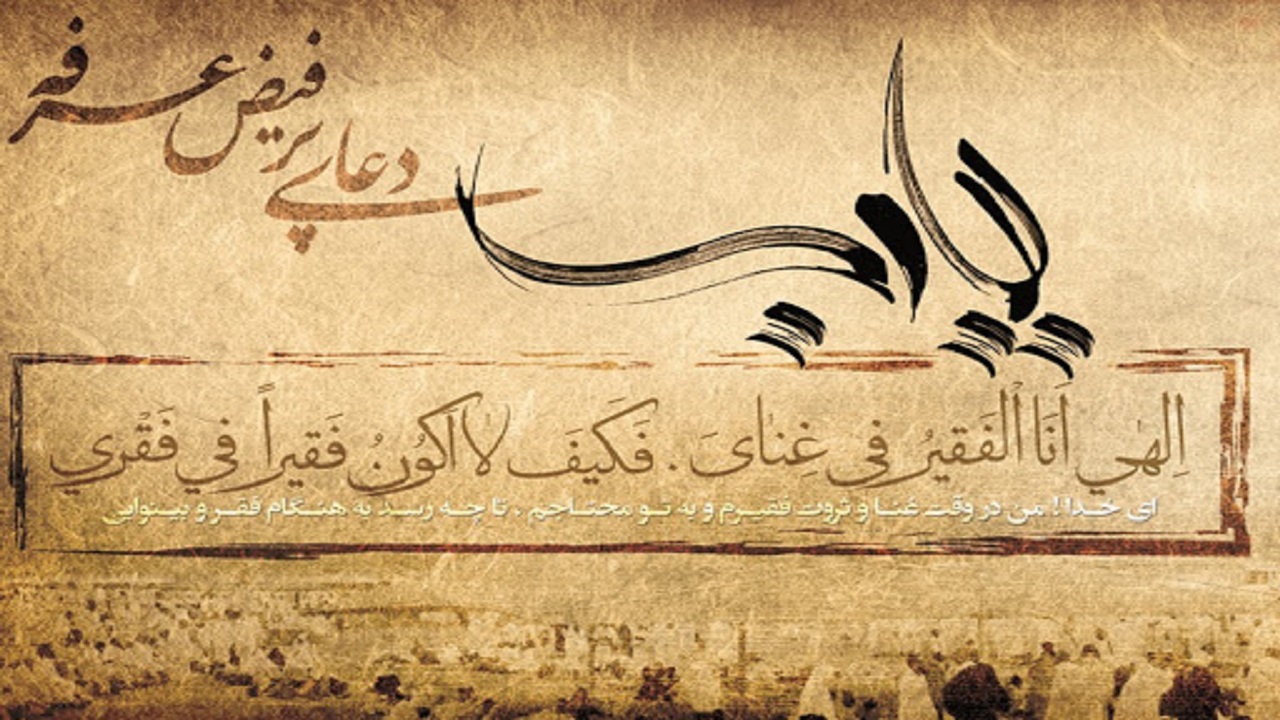 دعای پرفیض عرفه
یا رب
اِلٰهي اَنَا الْفَقيرُ في غِنٰایَ . فَکَیفَ لاٰ اَکُونُ فَقيراً في فَقْري
ای خدا! من در وقت غنا و ثروت فقیرم و به تو محتاجم ، تا چه رسد به هنگام فقر و بینوایی